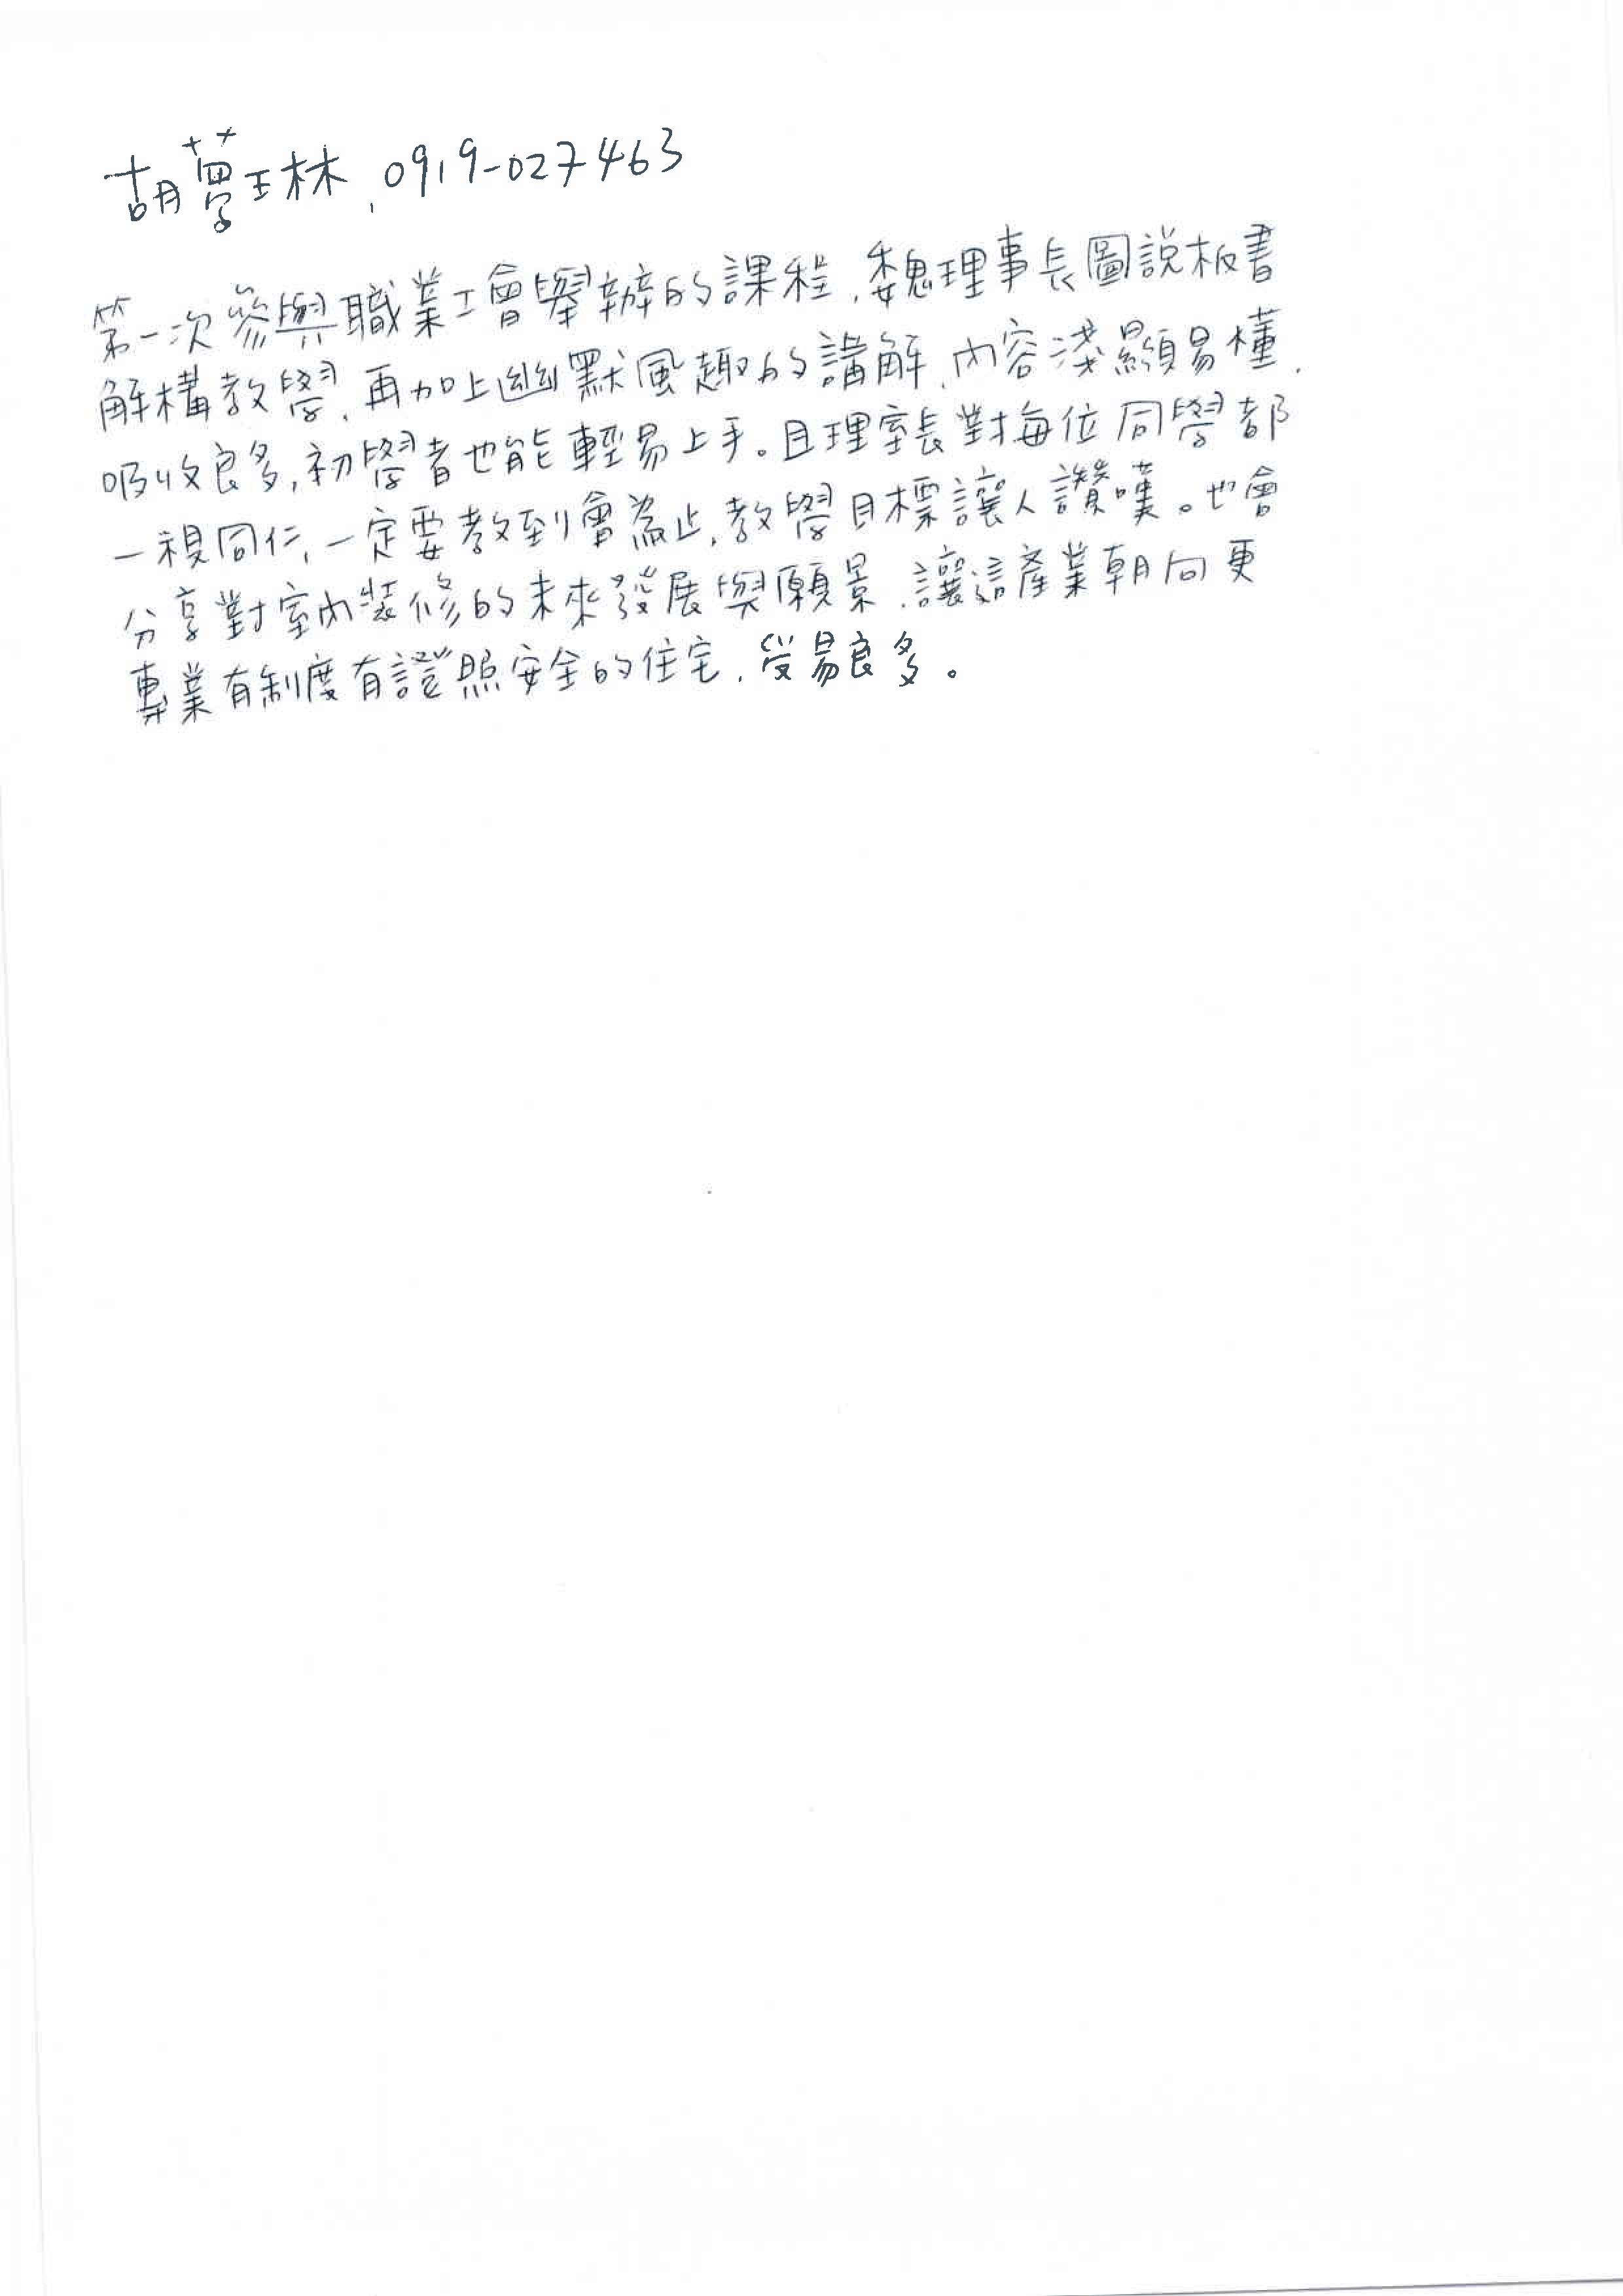 胡夢琳, 0919-027463
第一次參與職業工會舉辦的課程,魏理事長圖說板書
解構教學,再加上幽默風趣的講解,內容淺顯易懂.
吸收良多,初學者也能輕易上手。且理室長對每位同學都
一視同仁,一定要教到會為止,教學目標讓人讚嘆。也會
分享對室內裝修的未來發展與願景,讓這產業朝向更
專業有制度有證照安全的住宅,受易良多。